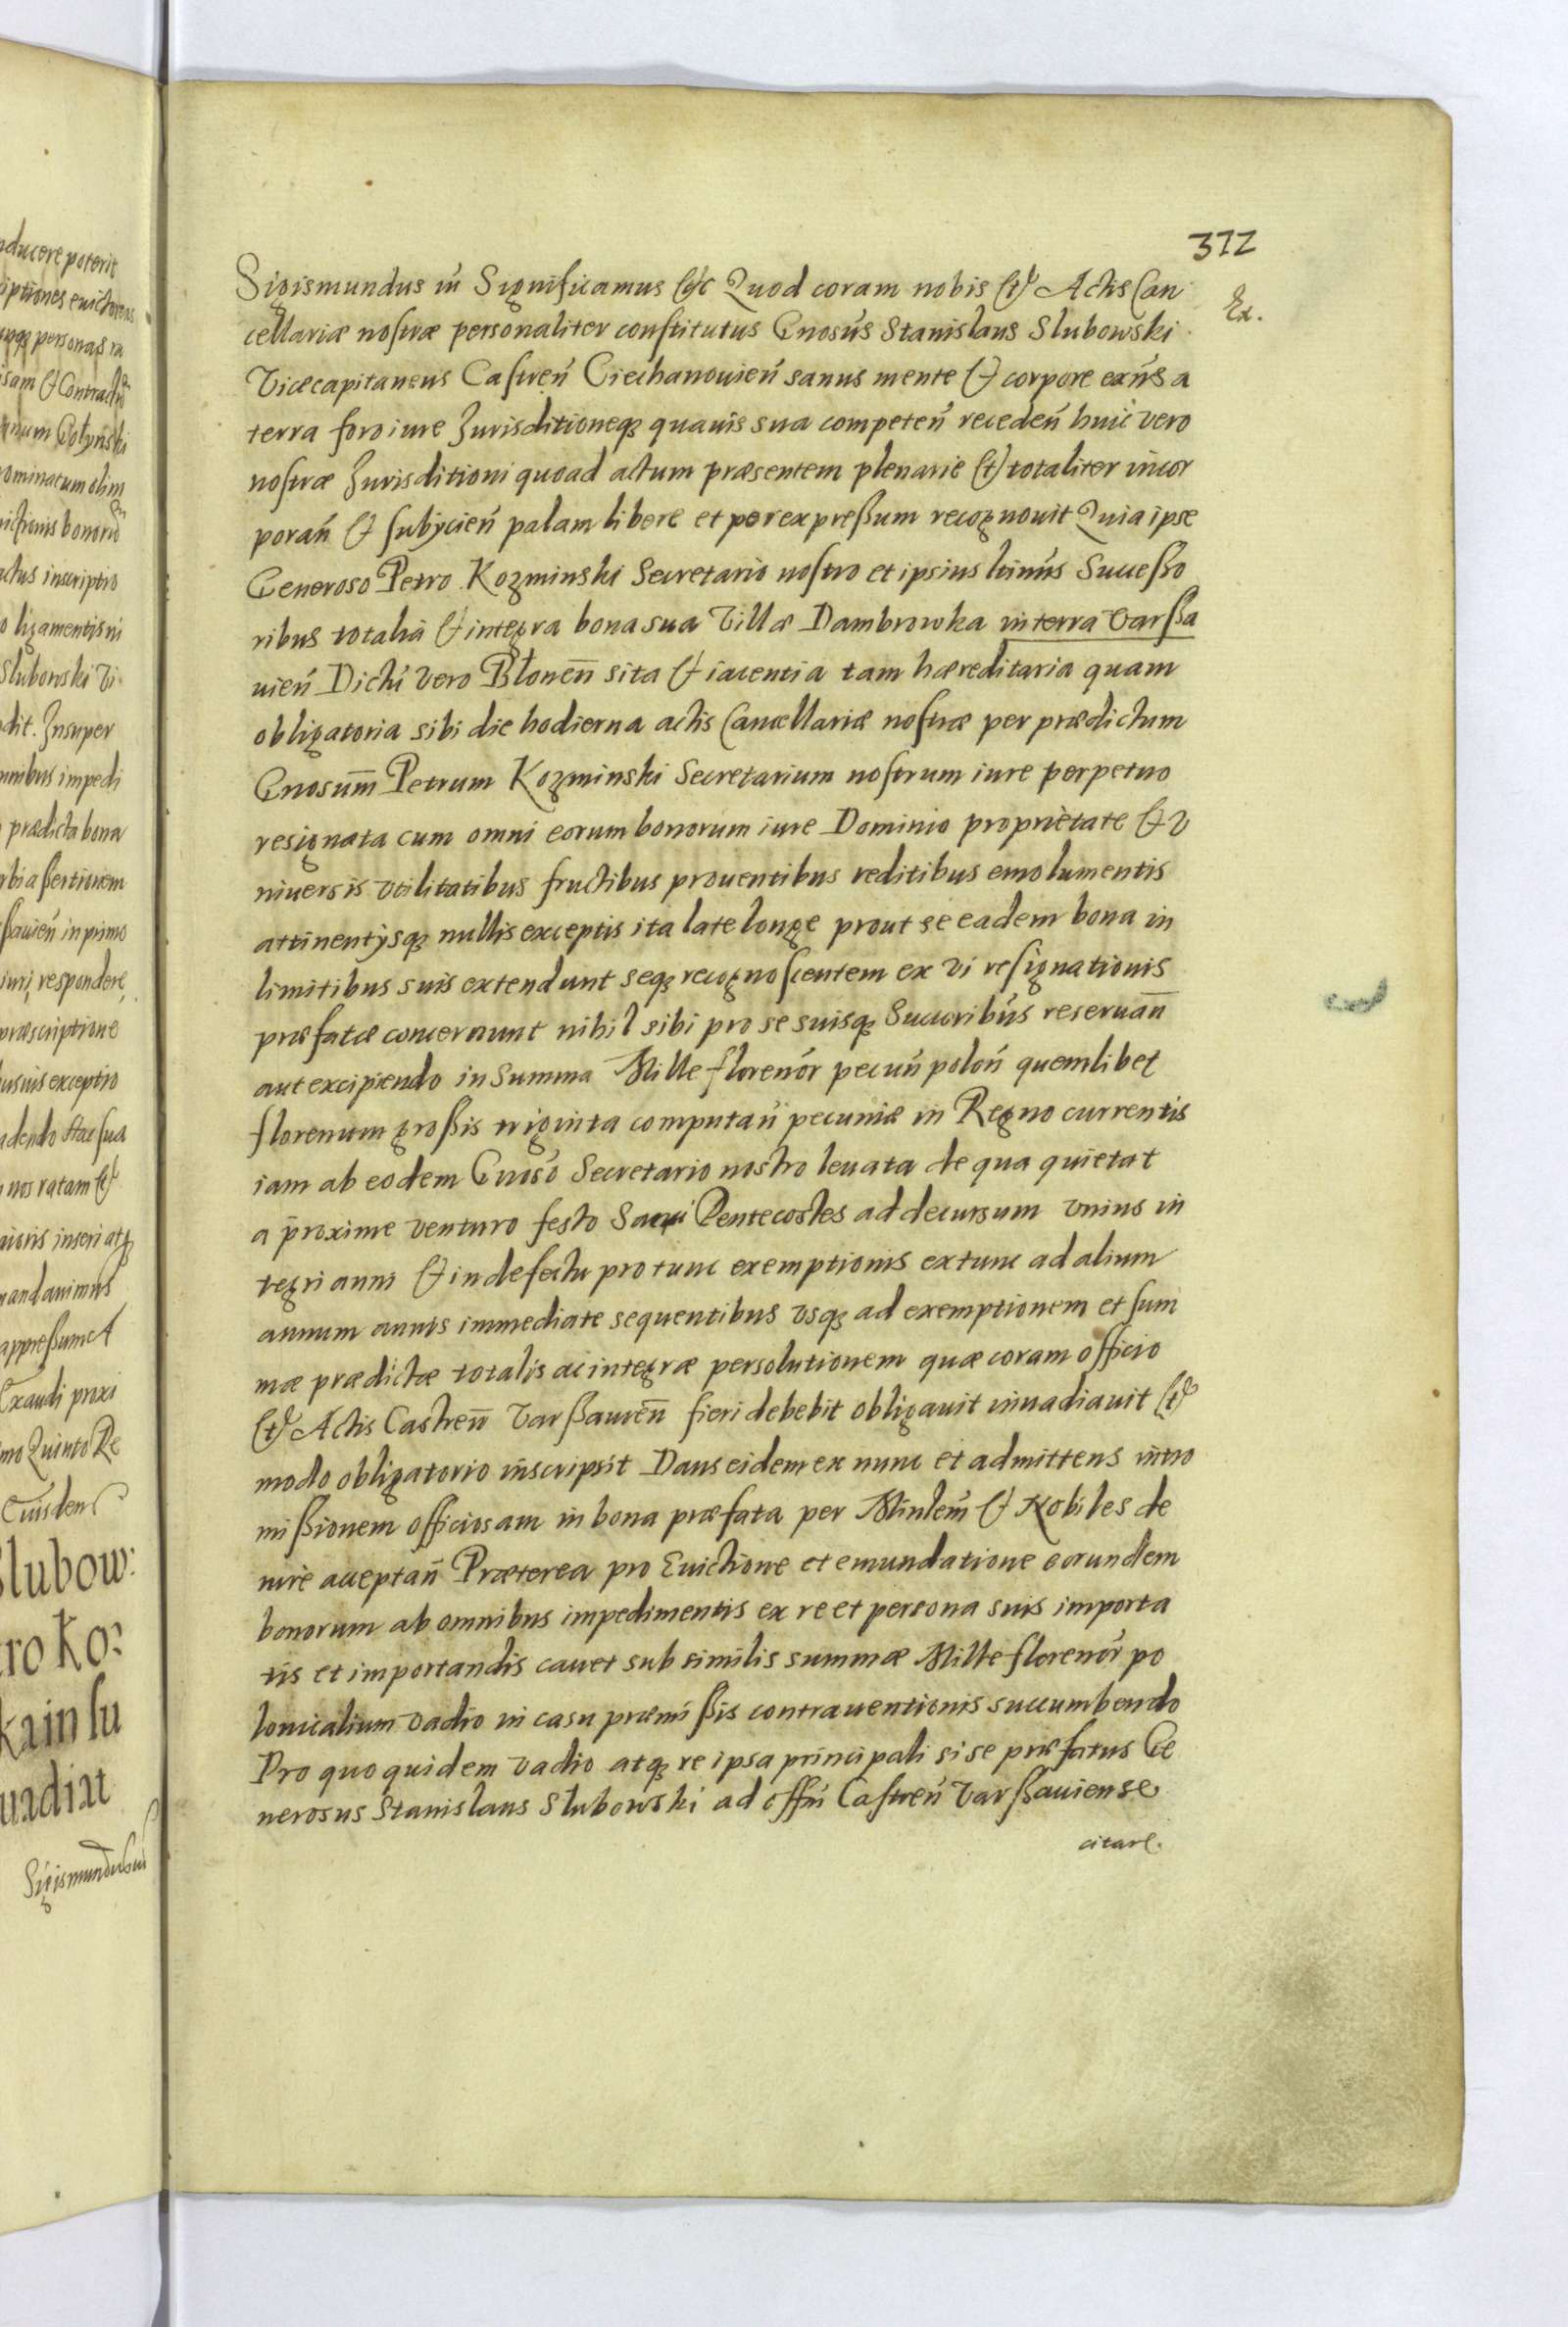 312
Sigismundus iii Significamus etc Quod coram nobis et Actis Can
Ex.
cellariæ nostræ personaliter constitutus Gnosus Stanislaus Slubowski
Vicecapitaneus Castren Ciechanouien sanus mente et corpore exns a
terra foro iure Jurisditioneq quauis sua competen receden huic vero
nostræ Jurisditioni quoad actum præsentem plenarie et totaliter incor
poran et subijcien palam libere et per expreßum recognouit Quia ipse
Generoso Petro Kozminski Secretario nostro et ipsius ltimis Succeßo
ribus totalia et integra bona sua Villæ Dambrowka in terra Varßa
uien Dictu vero Błonen sita et iacentia tam hæreditaria quam
obligatoria sibi die hodierna actis Cancellariæ nostræ per prædictum
Gnosum Petrum Kozminski Secretarium nostrum iure perpetuo
resignata cum omni eorum bonorum iure Dominio proprietate et v
niuersis vtilitatibus fructibus prouentibus reditibus emolumentis
attinentijsq nullis exceptis ita late longe prout se eadem bona in
limitibus suis extendunt seq recognoscentem ex vi resignationis
præfatæ concernunt nihil sibi pro se suisq Succoribus reseruan
aut excipiendo in Summa Mille florenor pecun polon quemlibet
florenum großis triginta computan pecuniæ in Regno currentis
iam ab eodem Gnoso Secretario nostro leuata de qua quietat
a proxime venturo festo Sacri Pentecostes ad decursum vnius in
tegri anni et in defectu pro tunc exemptionis ex tunc ad alium
annum annis immediate sequentibus vsq ad exemptionem et sum
mæ prædictæ totalis ac integræ persolutionem quæ coram officio
et Actis Castren Varßauien fieri debebit obligauit inuadiauit et
modo obligatorio inscripsit Dans eidem ex nunc et admittens intro
mißionem officiosam in bona præfata per Minlem et Nobiles de
iure acceptan Præterea pro Euictione et emundatione eorundem
bonorum ab omnibus impedimentis ex re et persona suis importa
tis et importandis cauet sub similis summæ Mille florenor po
lonicalium vadio in casu præmißis contrauentionis succumbendo
Pro quo quidem vadio atq re ipsa principali si se præfatus Ge
nerosus Stanislaus Slubowski ad offm Castren Varßauiense
citare.